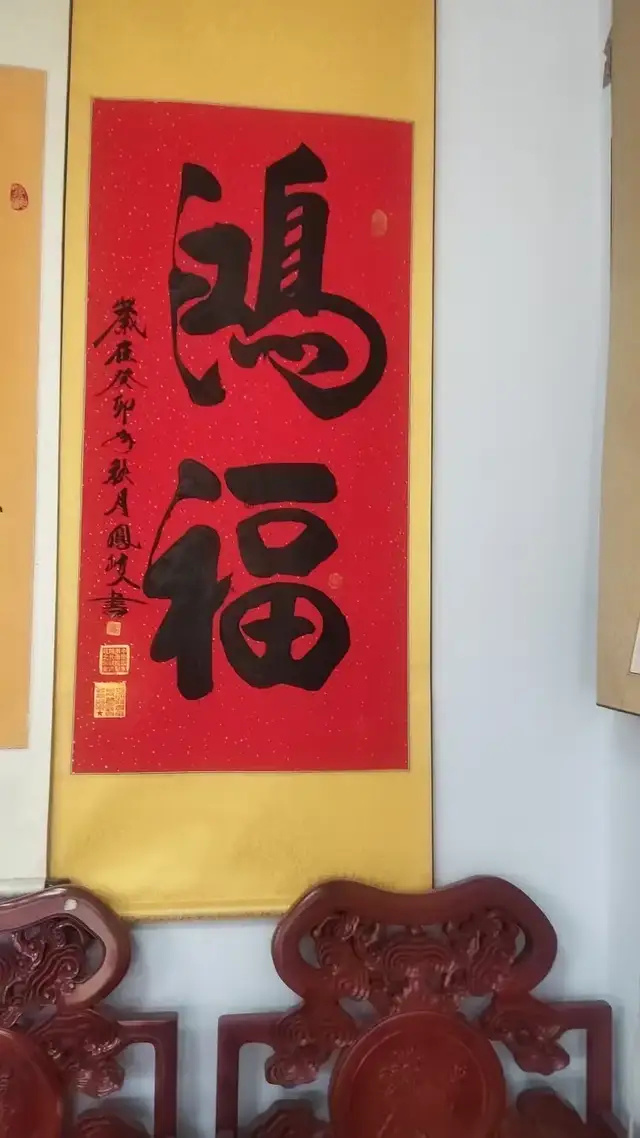 鴻福
歲在癸卯年秋月鳳岐人書